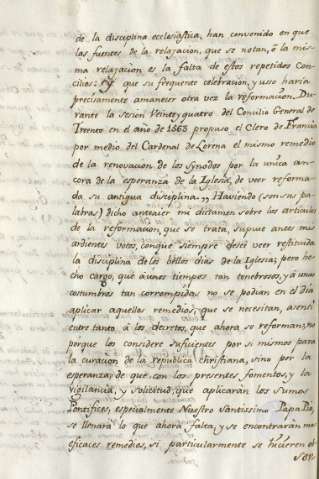 de la disciplina eclesiastica, han convenido en que
las fuentes de la relaxacion, que se notan, ô la mis-
ma relaxacion es la falta de estos repetidos Con-
cilios: y que su frequente celebracion, y uso haria
precisamente amanecer otra vez la reformacion. Du-
rante la sesion Veinte y quatro del Concilio General de
Trento en el año de 1563 propuso el Clero de Francia
por medio del Cardenal de Lorena el mismo remedio
de la renovacion de los Synodos por la unica an-
cora de la esperanza de la Iglesia, de veer reforma-
da su antigua disciplina. „ Haviendo (son sus pa-
labras) dicho antaier mi dictamen sobre los articulos
de la reformacion, que se trata, supuse antes mis
ardientes votos, conque siempre deseè veer restituida
la disciplina de los bellos dias de la Iglesia; pero he-
cho cargo, que â unos tiempos tan tenebrosos, y â unas
costumbres tan corrompidas no se podian en el dia
aplicar aquellos remedios, que se necesitan, asenti
entre tanto â los decretos, que ahora se reforman; no
porque los considere suficientes por si mismos para
la curacion de la republica christiana, sino por la
esperanza de que con los presentes fomentos, y la
vigilancia, y solicitud, que aplicarán los Sumos
Pontifices, especialmente Nuestro Santissimo Papa Pio,
se llenarà lo que ahora falta, y se encontrarán mas
eficaces remedios, si particularmente se hicieren el